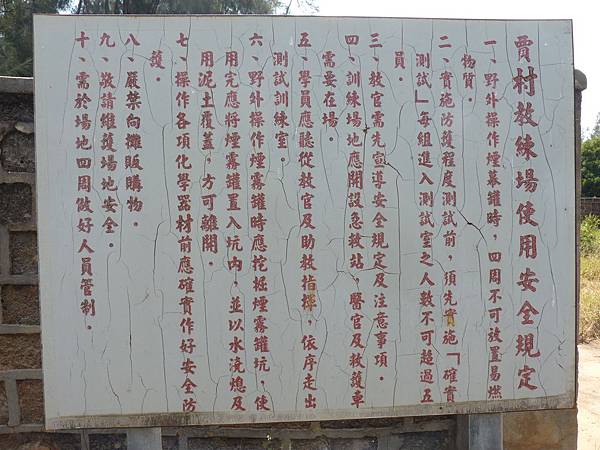 賈村教練場使用安全規定
一、野外操作煙幕罐時，四周不可放置易燃
物質。
二、實施防護程度測試前，須先實施「確實
測試」每組進入測試室之人數不可超過五
員。
三、教官需先宣導安全規定及注意事項。
四、訓練場地應開設急救站，醫官及救護車
需要在場。
五、學員應聽從教官及助教指揮，依序走出
測試訓練室。
六、野外操作煙霧罐時應挖掘煙霧罐坑，使
用完應將煙霧罐置入坑內，並以水澆熄及
用泥土覆蓋，方可離開。
七、操作各項化學器材前應確實作好安全防
護。
八、嚴禁向攤販購物。
九、敬請維護場地安全。
十、需於場地四周做好人員管制。